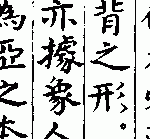 背之形。
亦據象人
為亞之本